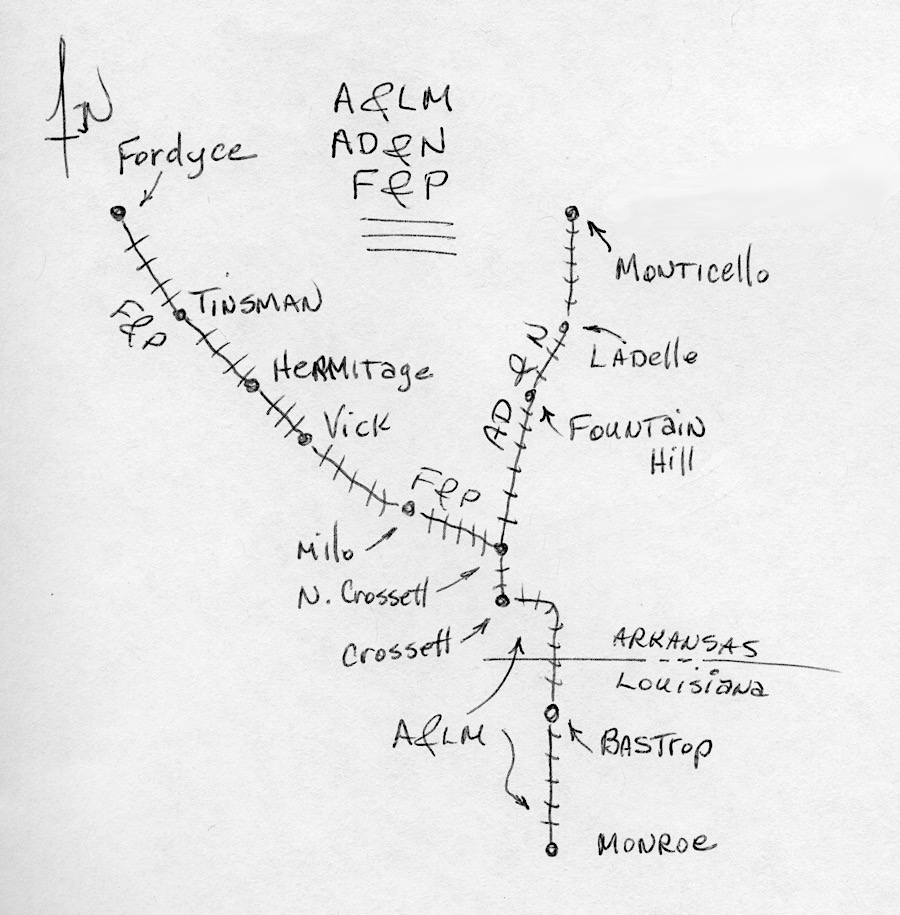 N
A&LM
AD&N
F&P
Fordyce
Monticello
Tinsman
F&P
LaDelle
Hermitage
AD & N
Fountain
Hill
Vick
F&P
Milo
N. Crossett
Crossett
Arkansas
Louisiana
A&LM
Bastrop
Monroe